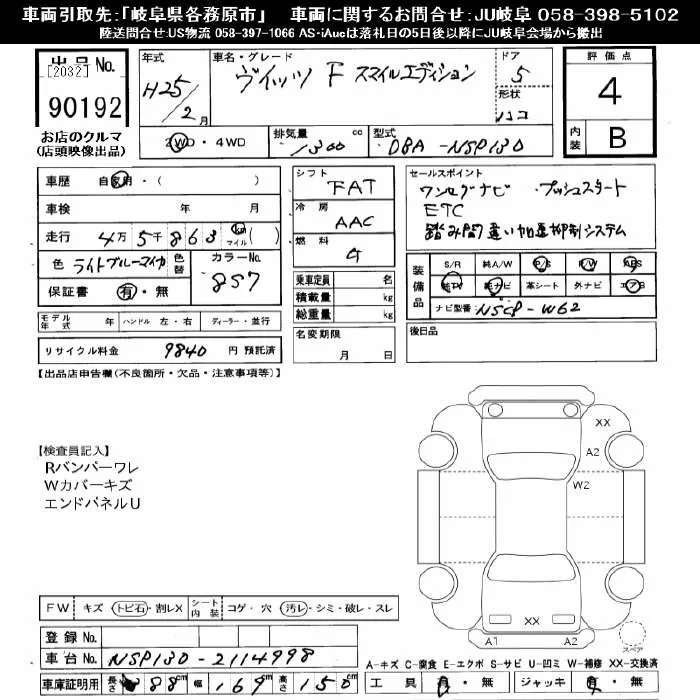 車両引取先:「岐阜県各務原市」 車両に関するお問合せ:JU岐阜 058-398-5102
陸送問合せ:US物流 058-397-1066 AS-iAucは落札日の5日後以降にJU岐阜会場から搬出
出品No.
[2032]
90192
お店のクルマ
(店頭映像出品)
年式
H25/2月
車名・グレード
ヴィッツ F スマイルエディション
ドア
5
形状
評価点
4
内装
B
2WD・4WD
排気量
1300 cc
型式
DBA-NSP130
車歴 自家用・( )
車検 年 月
走行 4万 5千 863 km マイル( )
色 ライトブルーマイカ
色替
カラーNo.
8S7
保証書 有・無
シフト
FAT
冷房
AAC
燃料
G
乗車定員 名
積載量 kg
総重量 kg
セールスポイント
ワンセグナビ ・プッシュスタート
ETC
踏み間違い加速抑制システム
装備品
S/R 純A/W P/S P/W ABS
純TV 純ナビ 革シート 外ナビ エアB
ナビ型番 NSCP-W62
モデル年式 年 ハンドル 左・右 ディーラー・並行
リサイクル料金 9840 円 預託済
名変期限
月 日
後日品
【出品店申告欄(不良箇所・欠品・注意事項等)】
【検査員記入】
Rバンパーワレ
Wカバーキズ
エンドパネルU
XX
A2
W2
XX
A1
A2
スペア
FW キズ・トビ石・割レX
シート内装
コゲ・穴・汚レ・シミ・破レ・スレ
登録No.
車台No. NSP130-2114998
車庫証明用 長さ 388cm 幅 169cm 高さ 150cm
A-キズ C-腐食 E-エクボ S-サビ U-凹ミ W-補修 XX-交換済
工具 有・無 ジャッキ 有・無